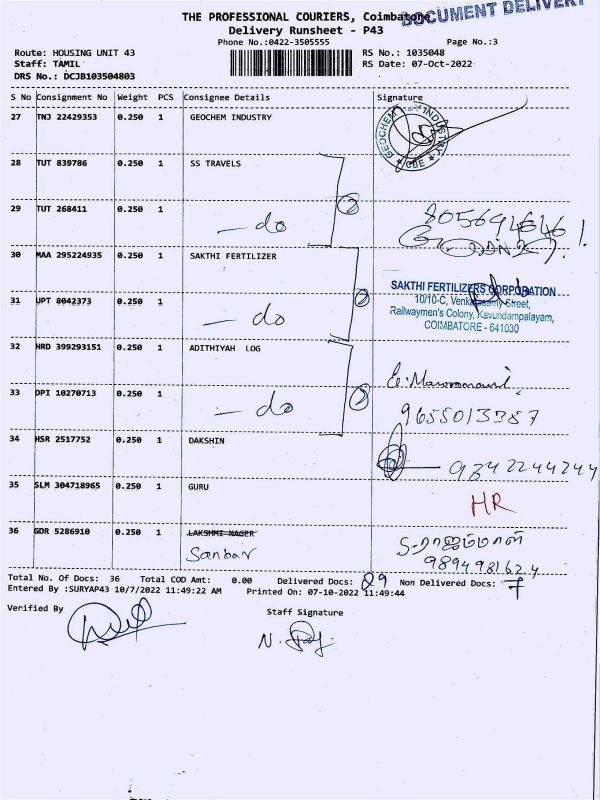 THE PROFESSIONAL COURIERS, Coimbatore
DOCUMENT DELIVERY
Delivery Runsheet - P43
Phone No.:0422-3505555 Page No.:3
Route: HOUSING UNIT 43 RS No.: 1035048
Staff: TAMIL RS Date: 07-Oct-2022
DRS No.: DCJB103504803
S No Consignment No Weight PCS Consignee Details Signature
27 TNJ 22429353 0.250 1 GEOCHEM INDUSTRY
GEOCHEM INDUSTRY CBE
28 TUT 839786 0.250 1 SS TRAVELS
2
29 TUT 268411 0.250 1 - do
30 MAA 295224935 0.250 1 SAKTHI FERTILIZER
SAKTHI FERTILIZERS CORPORATION
10/10-C, Venkatasamy Street,
Railwaymen's Colony, Kavundampalayam,
COIMBATORE - 641030
2
31 UPT 8042373 0.250 1 - do
32 HRD 399293151 0.250 1 ADITHIYAH LOG
2
33 DPI 10270713 0.250 1 - do 9655013387
34 HSR 2517752 0.250 1 DAKSHIN 9842244244
35 SLM 304718965 0.250 1 GURU HR
36 GDR 5286910 0.250 1 LAKSHMI NAGER S-ராஜம்மாள்
9894981624
Total No. Of Docs: 36 Total COD Amt: 0.00 Delivered Docs: 29 Non Delivered Docs: 7
Entered By :SURYAP43 10/7/2022 11:49:22 AM Printed On: 07-10-2022 11:49:44
Verified By Staff Signature